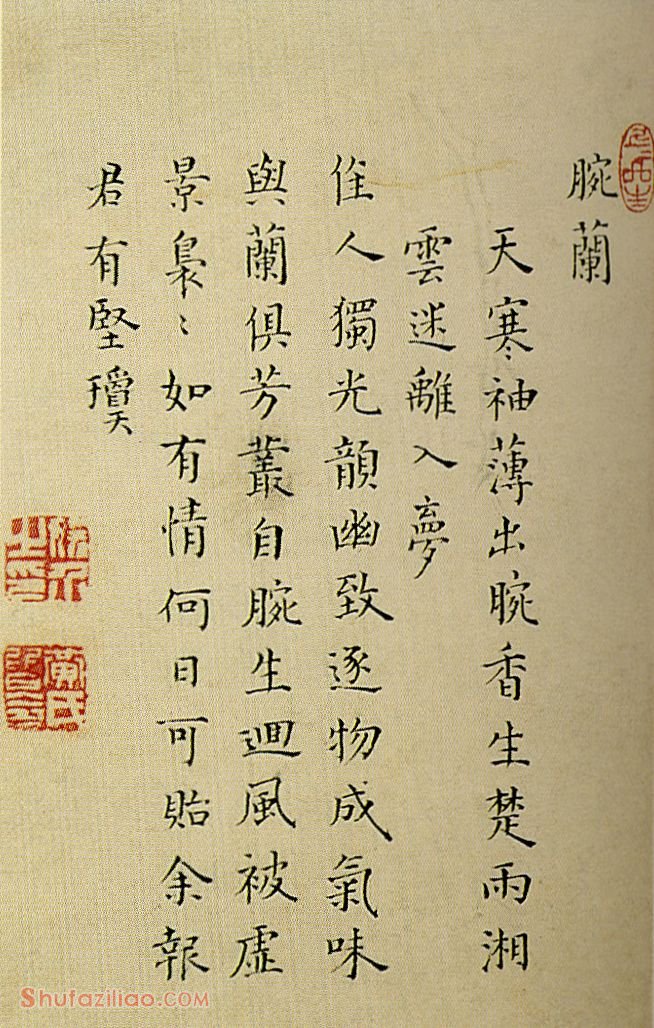 腕蘭
天寒袖薄出腕香生楚雨湘
雲迷離入夢
佳人獨光韻幽致逐物成氣味
與蘭俱芳叢自腕生迴風被虛
景裊〻如有情何日可貽余報
君有堅瓊
Shufaziliao.COM